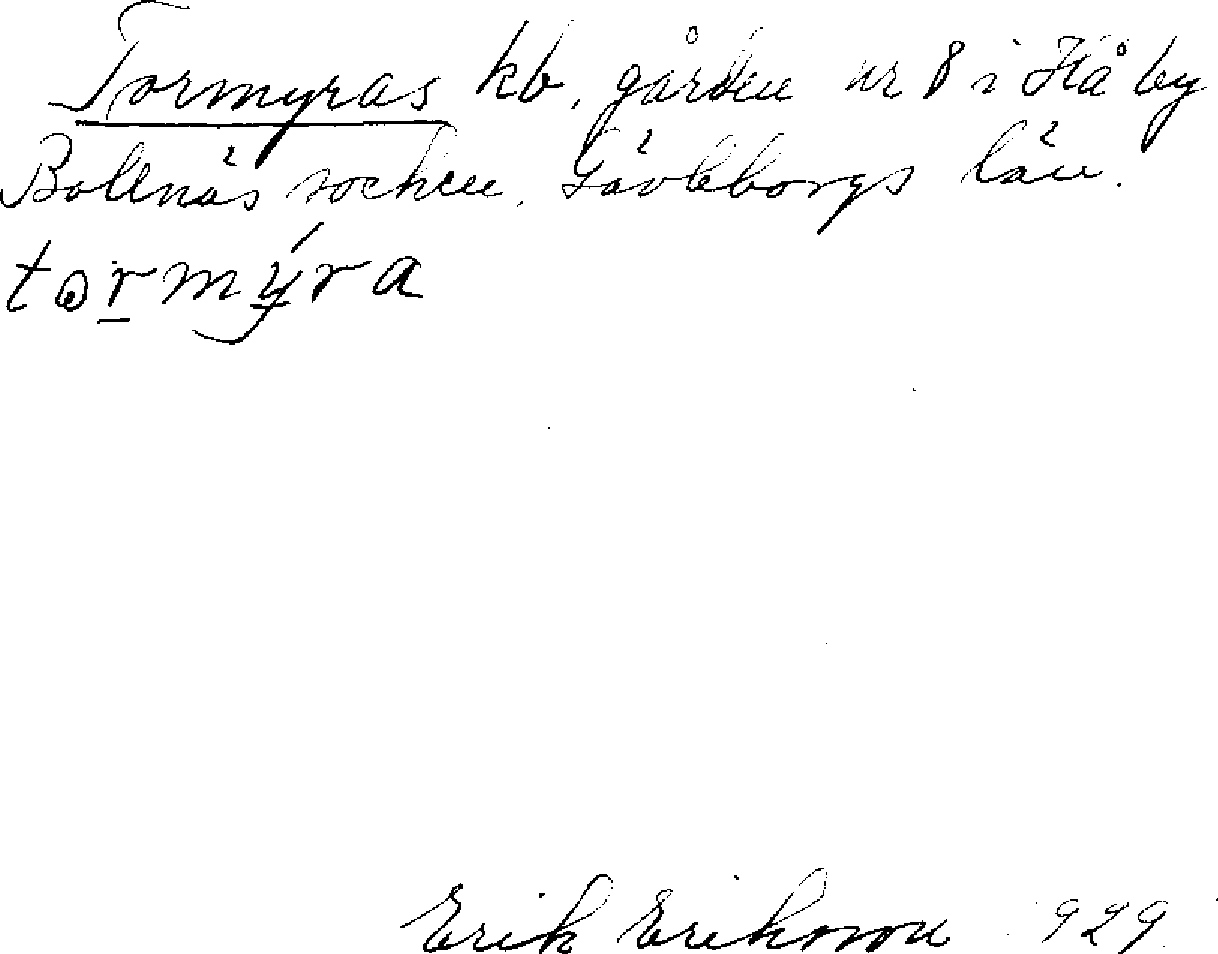 Tormyras kb, gården nr 8 i Hå by
Bollnäs socken, Gävleborgs län.
tormýra
Erik Eriksson 929